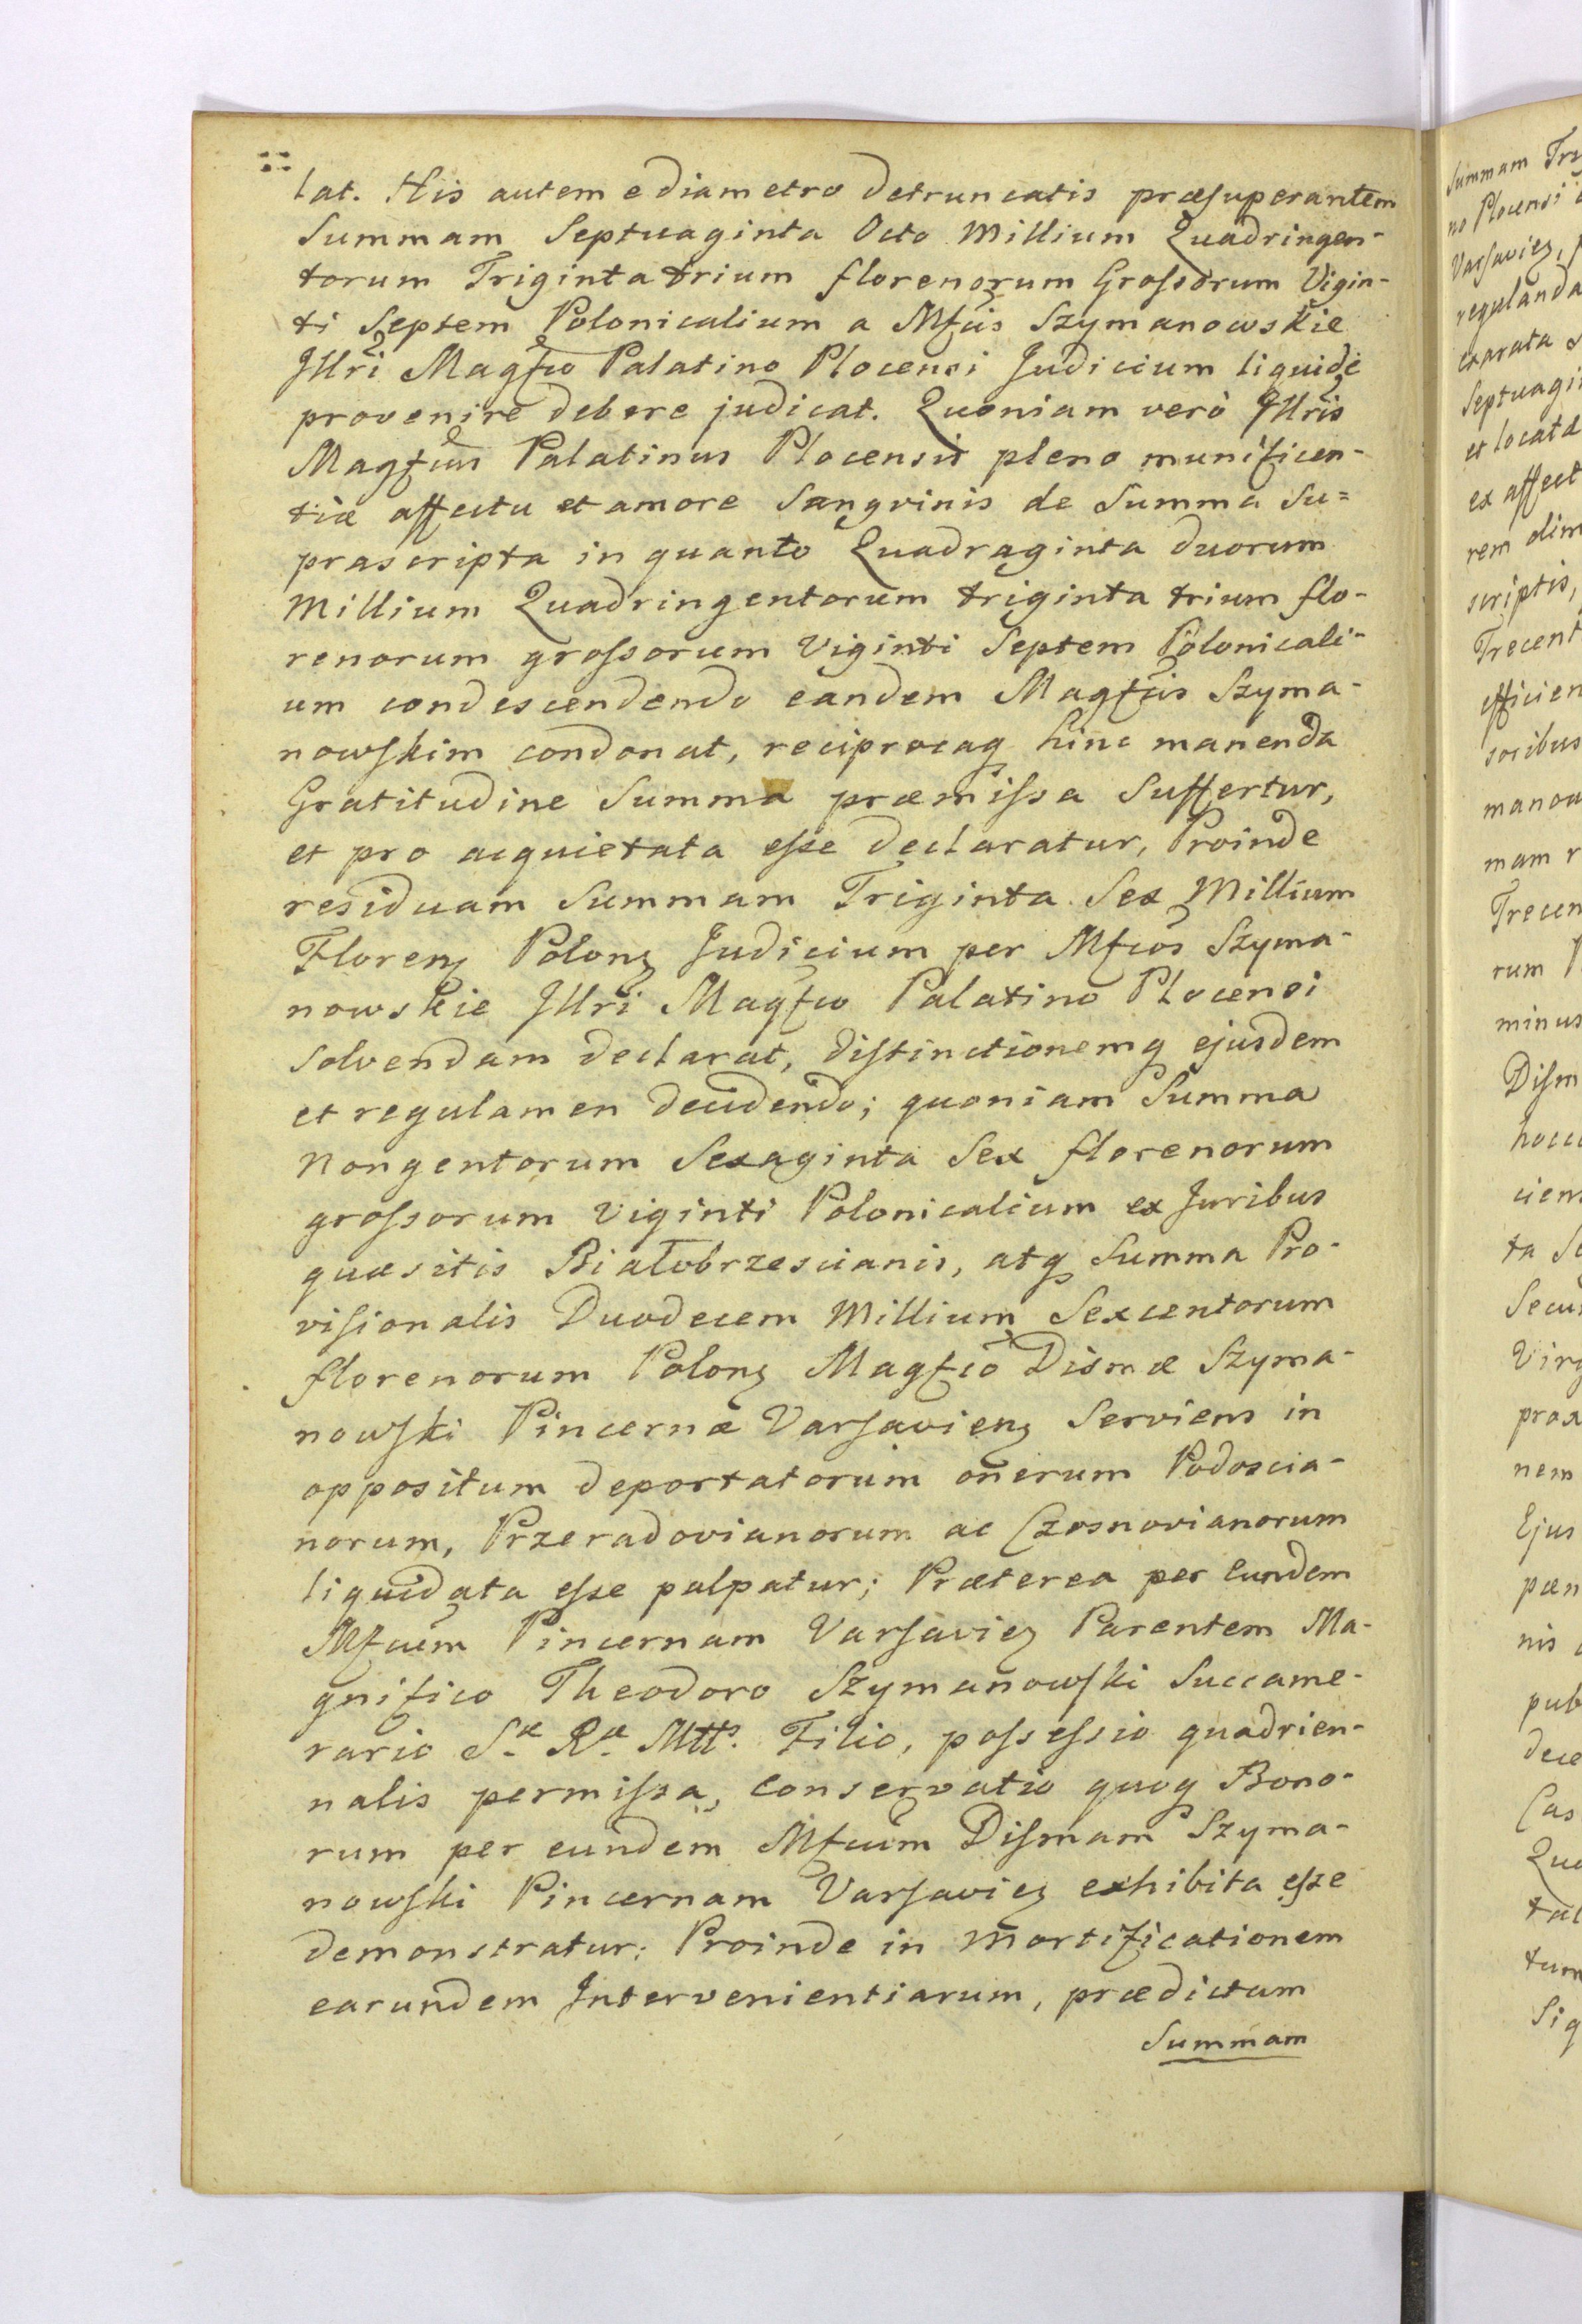 lat. His autem e diametro detruncatis præsuperantem
Summam Septuaginta Octo Millium Quadringen-
torum Triginta trium florenorum Grossorum Vigin-
ti Septem Polonicalium a Mfcis Szymanowskie
Illri Magfco Palatino Plocensi Judicium liquide
provenire debere judicat. Quoniam verò Illris
Magfcus Palatinus Plocensis pleno munificen-
tiæ affectu et amore Sangvinis de Summa Su=
prascripta in quanto Quadraginta duorum
Millium Quadringentorum triginta trium flo-
renorum grossorum Viginti Septem Polonicali-
um condescendendo eandem Magfcis Szyma-
nowskim condonat, reciprocaq hinc manenda
Gratitudine Summa præmissa Suffertur,
et pro acquietata esse declaratur, Proinde
residuam Summam Triginta Sex Millium
Floren Polon Judicium per Mfcos Szyma-
nowskie Illri Magfco Palatino Plocensi
Solvendam declarat, distinctionemq ejusdem
et regulamen decidendo; quoniam Summa
Nongentorum Sexaginta Sex florenorum
grossorum viginti Polonicalium ex Juribus
quæsitis Białobrzescianis, atq Summa Pro-
visionalis Duodecem Millium Sexcentorum
florenorum Polon Magfco Dismæ Szyma-
nowski Pincernæ Varsavien Serviens in
oppositum deportatorum onerum Podoscia-
norum, Przeradovianorum ac Czosnovianorum
liquidata esse palpatur; Præterea per Eundem
Mfcum Pincernam Varsavien Parentem Ma-
gnifico Theodoro Szymanowski Succame-
rario Sæ Ræ Mtts. Filio, possessio quadrien-
nalis permissa, Conservatio quoq Bono-
rum per eundem Mfcum Dismam Szyma-
nowski Pincernam Varsavien exhibita esse
demonstratur: Proinde in Mortificationem
earundem Intervenientiarum, prædictam
Summam
Summam
no Plocensi
Varsavien,
regulanda
exarata
Septuagi
et locata
ex affect
rem olim
scriptis,
Trecent
efficien
soribus
manow
mam r
Trecen
rum
minus
Dism
ciens
ta Se
Secu
Virg
prox
nem
Ejus
pæn
nis
pub
dece
Cas
Qua
tal
tum
Sig